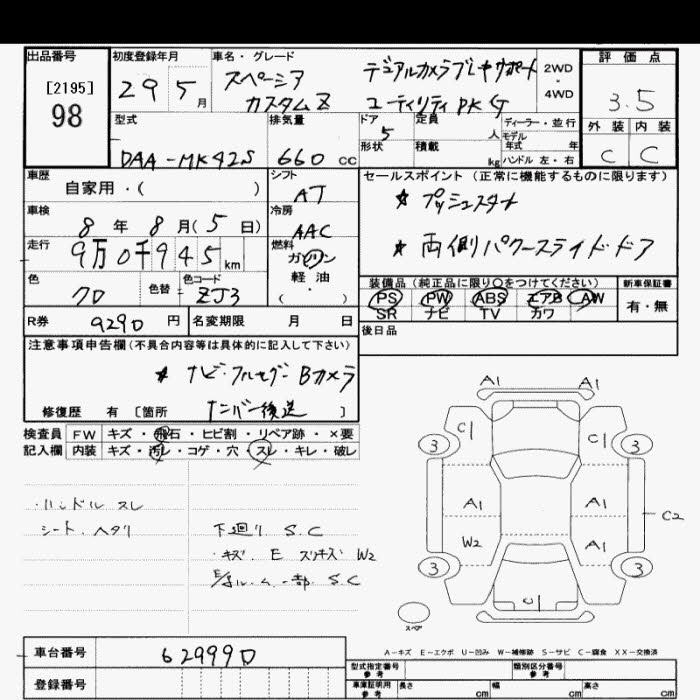 出品番号 初度登録年月 車名・グレード 評価点
[2195] 29 5月 スペーシア デュアルカメラブレーキサポート 2WD・4WD
98 カスタムZ ユーティリティPKG 3.5
型式 排気量 ドア 5 定員 人 ディーラー・並行 外装 内装
DAA-MK42S 660 CC 形状 積載 kg モデル年式 年 ハンドル 左・右 C C
車歴 自家用・( ) シフト AT セールスポイント(正常に機能するものに限ります)
車検 8年8月(5日) 冷房 AAC * プッシュスタート
走行 9万0千945km 燃料 ガソリン 軽油 ( ・ ) * 両側パワースライドドア
色 クロ 色替 色コード ZJ3 装備品(純正品に限り○をつけてください) 新車保証書
PS PW ABS エアB AW 有・無
SR ナビ TV カワ
R券 9290円 名変期限 月 日 後日品
注意事項申告欄(不具合内容等は具体的に記入して下さい)
* ナビ・フルセグ・Bカメラ
修復歴 有 [箇所 ナンバー後送 ]
検査員 FW キズ・飛石・ヒビ割・リペア跡・×要
記入欄 内装 キズ・汚レ・コゲ・穴・スレ・キレ・破レ
A1 A1
C1 C1
3 3
A1 A1
C2
W2 A1
3 3
U1
スペア
・ハンドル スレ
シート・ヘタリ 下廻り S.C
・キズ・E スリキズ W2
一部 S.C
A-キズ E-エクボ U-凹み W-補修跡 S-サビ C-腐食 XX-交換済
車台番号 629990
登録番号
型式指定番号 参考 類別区分番号 参考
車庫証明用 参考 長さ cm 幅 cm 高さ cm